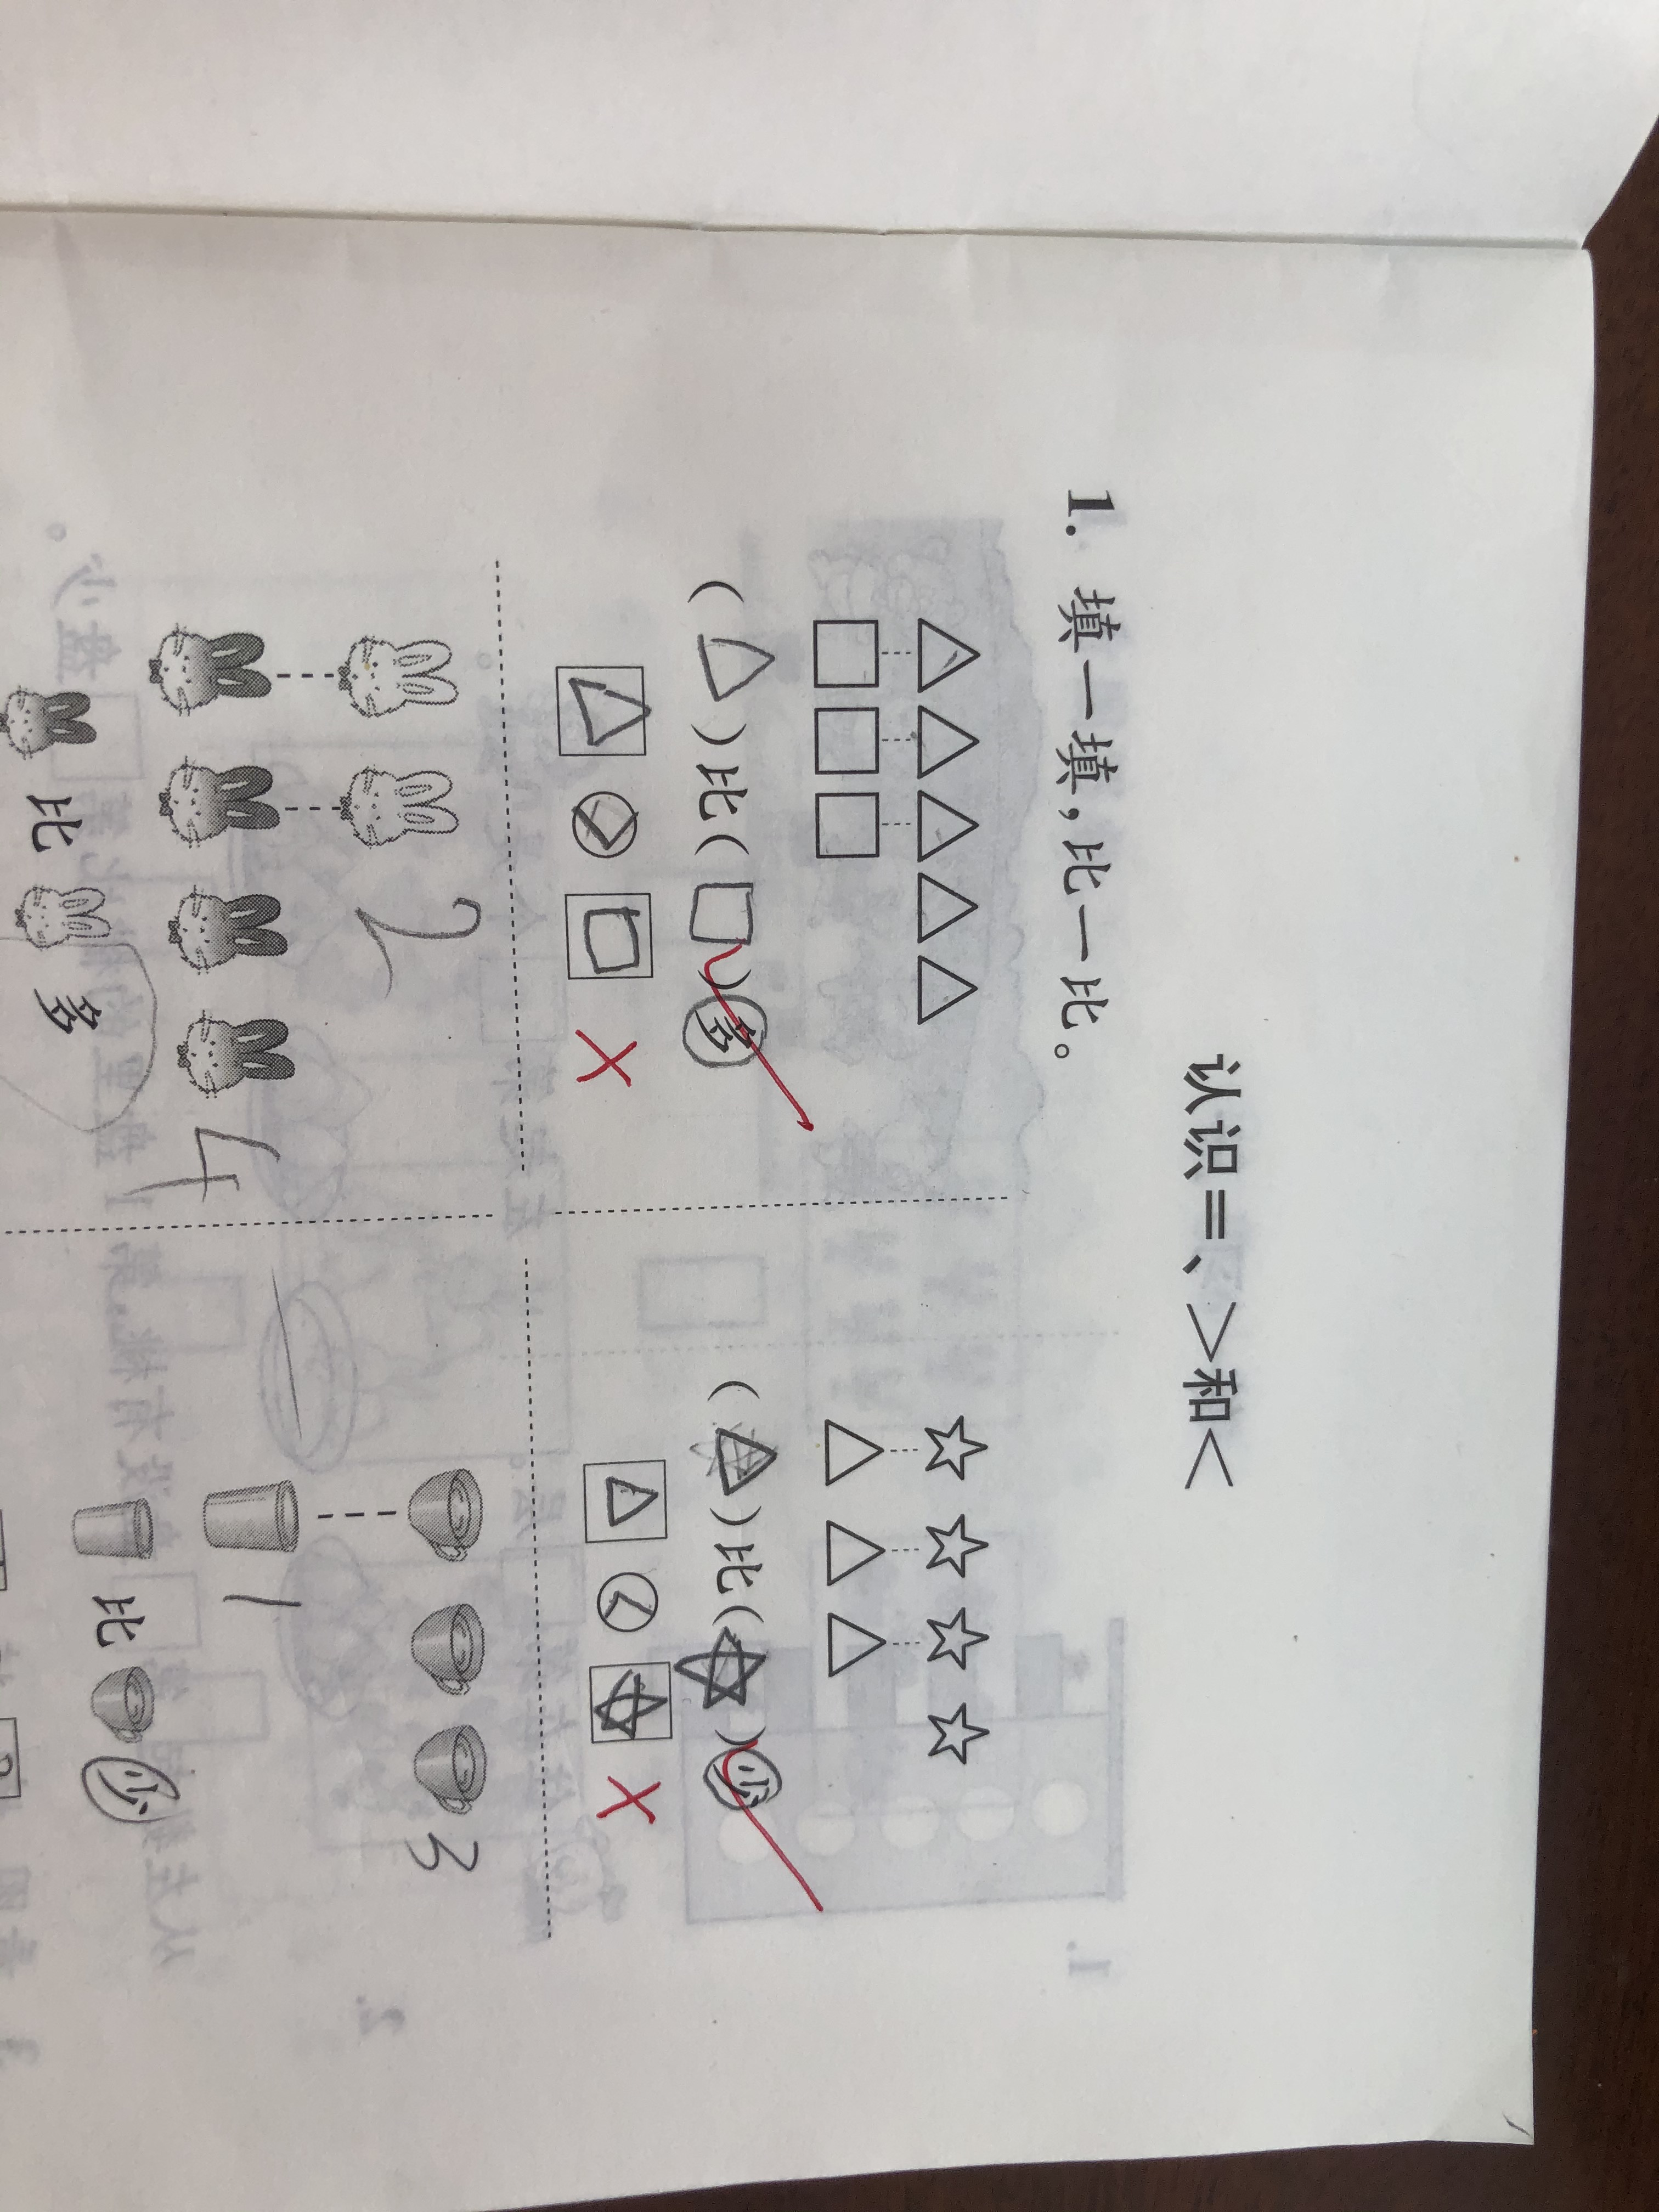 认识=、>和<
1. 填一填，比一比。
( △ )比( □ )多
△ > □ ×
( △ )比( ☆ )少
△ < ☆ ×
2
4
比 多
3
1
比 少